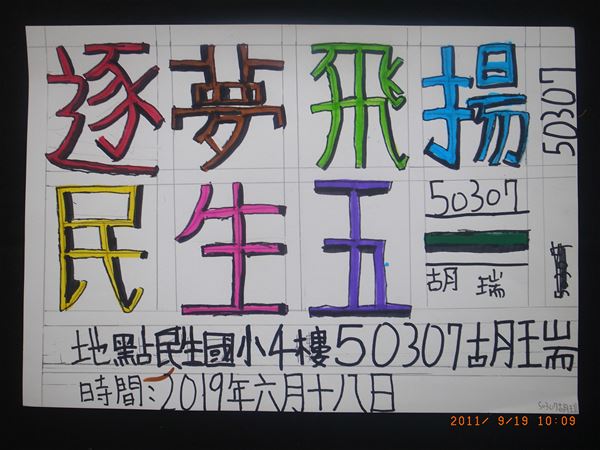 逐夢飛揚
50307
民生五
50307
胡瑞
地點民生國小4樓50307胡瑞
時間:2019年六月十八日
50307胡瑞
2011/ 9/19 10:09